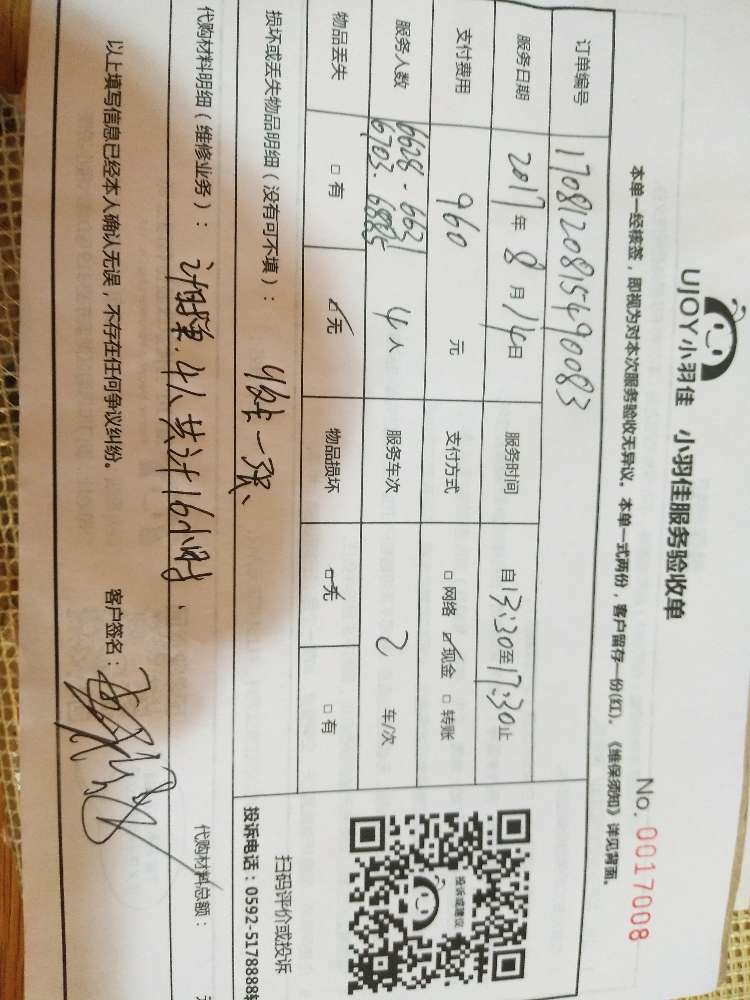 UJOY小羽佳 小羽佳服务验收单
No. 0017008
本单一经核签，即视为对本次服务验收无异议。本单一式两份，客户留存一份(红)。《维保须知》详见背面。
订单编号 170812081549 0083
服务日期 2017年 8月 14日 服务时间 自13:30至17:30止
支付费用 960 元 支付方式 □ 网络 ☑ 现金 □ 转账
服务人数 6628. 6631 6703. 6885 4人 服务车次 2 车/次
物品丢失 □ 有 ☑ 无 物品损坏 ☑ 无 □ 有
投诉或建议
扫码评价或投诉
投诉电话：0592-5178888转
损坏或丢失物品明细（没有可不填）： 收据一张、
代购材料明细（维修业务）： 4人共计16小时. 代购材料总额：
以上填写信息已经本人确认无误，不存在任何争议纠纷。 客户签名：